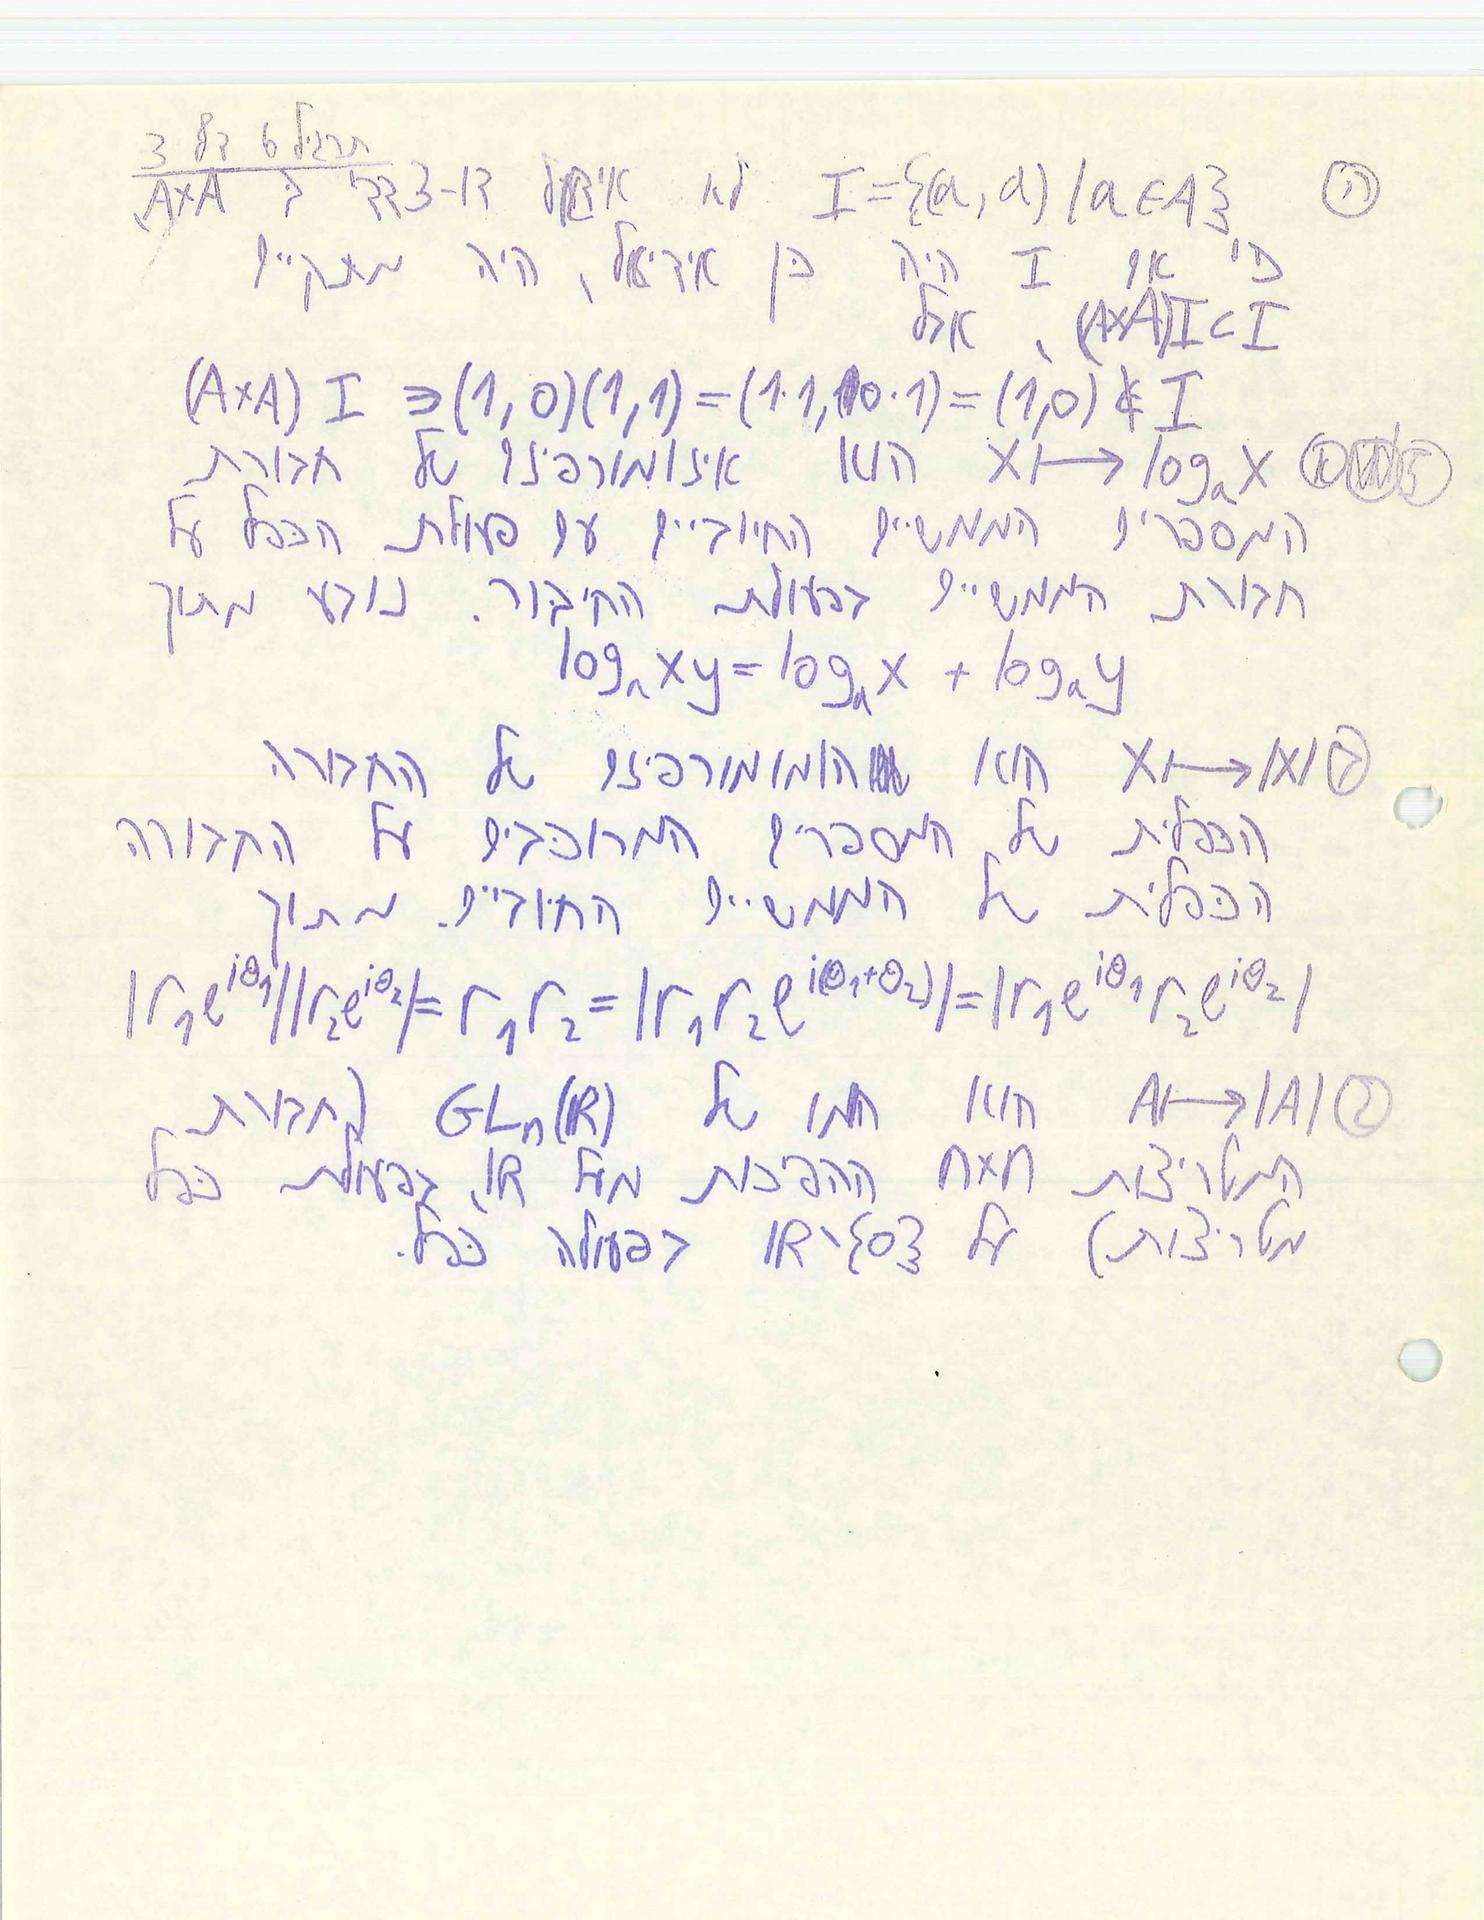 תרגיל 6 דף 3
ה) I={(a,a)|a∈A} לא אידיאל דו-צדדי ב A×A,
כי אם I היה כן אידיאל, היה מתקיים
(A×A)I⊂I, אבל
(A×A) I ∋(1,0)(1,1)=(1·1,0·1)=(1,0)∉I
x↦logₐx הוא איזומורפיזם של חבורת
המספרים הממשיים החיוביים עם פעולת הכפל על
חבורת הממשיים בפעולת החיבור. נובע מתוך
logₐxy=logₐx + logₐy
ב) x↦|x| הוא הומומורפיזם של החבורה
הכפלית של המספרים המרוכבים על החבורה
הכפלית של הממשיים החיוביים. מתוך
|r₁e^{iθ₁}||r₂e^{iθ₂}|=r₁r₂=|r₁r₂e^{i(θ₁+θ₂)}|=|r₁e^{iθ₁}r₂e^{iθ₂}|
ג) A↦|A| הוא הומו של GLₙ(ℝ) (חבורת
המטריצות n×n ההפיכות מעל ℝ, בפעולת כפל
מטריצות) על ℝ\{0} בפעולה כפל.